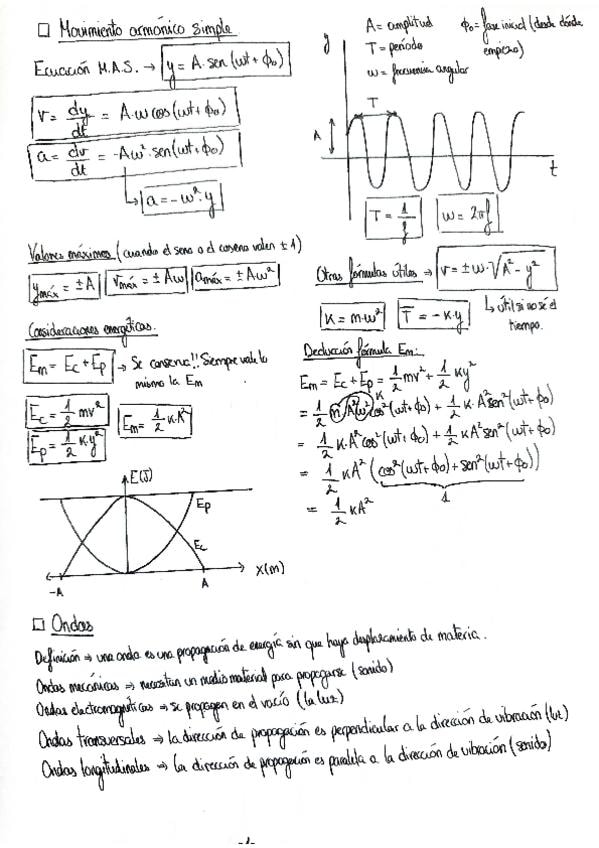 □ Movimiento armónico simple
Ecuación M.A.S. → y = A·sen(ωt + φ₀)
v = dy/dt = A·ω cos(ωt + φ₀)
a = dv/dt = -Aω²·sen(ωt + φ₀)
↳ a = -ω²·y
A = amplitud
φ₀ = fase inicial (desde dónde empieza)
T = período
ω = frecuencia angular
y
T
A
t
T = 1/f
ω = 2πf
Valores máximos (cuando el seno o el coseno valen ±1)
ymáx = ±A
vmáx = ±Aω
amáx = ±Aω²
Otras fórmulas útiles → v = ±ω·√(A² - y²)
↳ útil si no sé el tiempo.
K = m·ω²
F = -K·y
Consideraciones energéticas.
Em = Ec + Ep → Se conserva!! Siempre vale lo
mismo la Em
Ec = 1/2 mv²
Ep = 1/2 K·y²
Em = 1/2 K·A²
Deducción fórmula Em:
Em = Ec + Ep = 1/2 mv² + 1/2 Ky²
= 1/2 m A² ω² cos²(ωt + φ₀) + 1/2 K·A² sen²(ωt + φ₀)
K
= 1/2 K·A² cos²(ωt + φ₀) + 1/2 KA² sen²(ωt + φ₀)
= 1/2 KA² (cos²(ωt + φ₀) + sen²(ωt + φ₀))
1
= 1/2 KA²
E(J)
Ep
Ec
x(m)
-A
A
□ Ondas
Definición → una onda es una propagación de energía sin que haya desplazamiento de materia.
Ondas mecánicas → necesitan un medio material para propagarse (sonido)
Ondas electromagnéticas → se propagan en el vacío (la luz)
Ondas transversales → la dirección de propagación es perpendicular a la dirección de vibración (luz)
Ondas longitudinales → la dirección de propagación es paralela a la dirección de vibración (sonido)